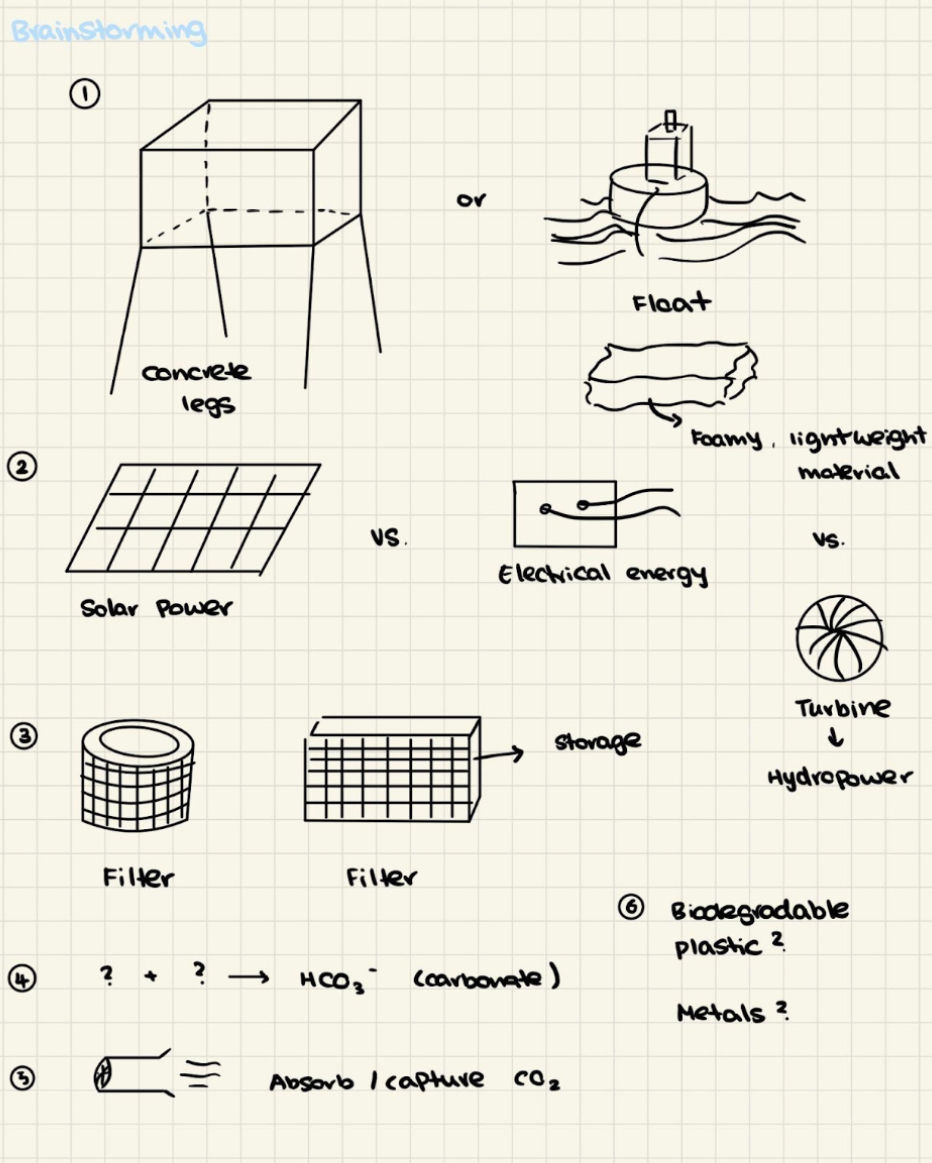 Brainstorming
①
or
Float
concrete
legs
Foamy, lightweight
material
②
vs.
vs.
Electrical energy
Solar Power
Turbine
↓
Hydropower
③
Storage
Filter
Filter
⑥ Biodegradable
plastic?
Metals?
④ ? + ? → HCO₃⁻ (carbonate)
⑤ Absorb / capture CO₂